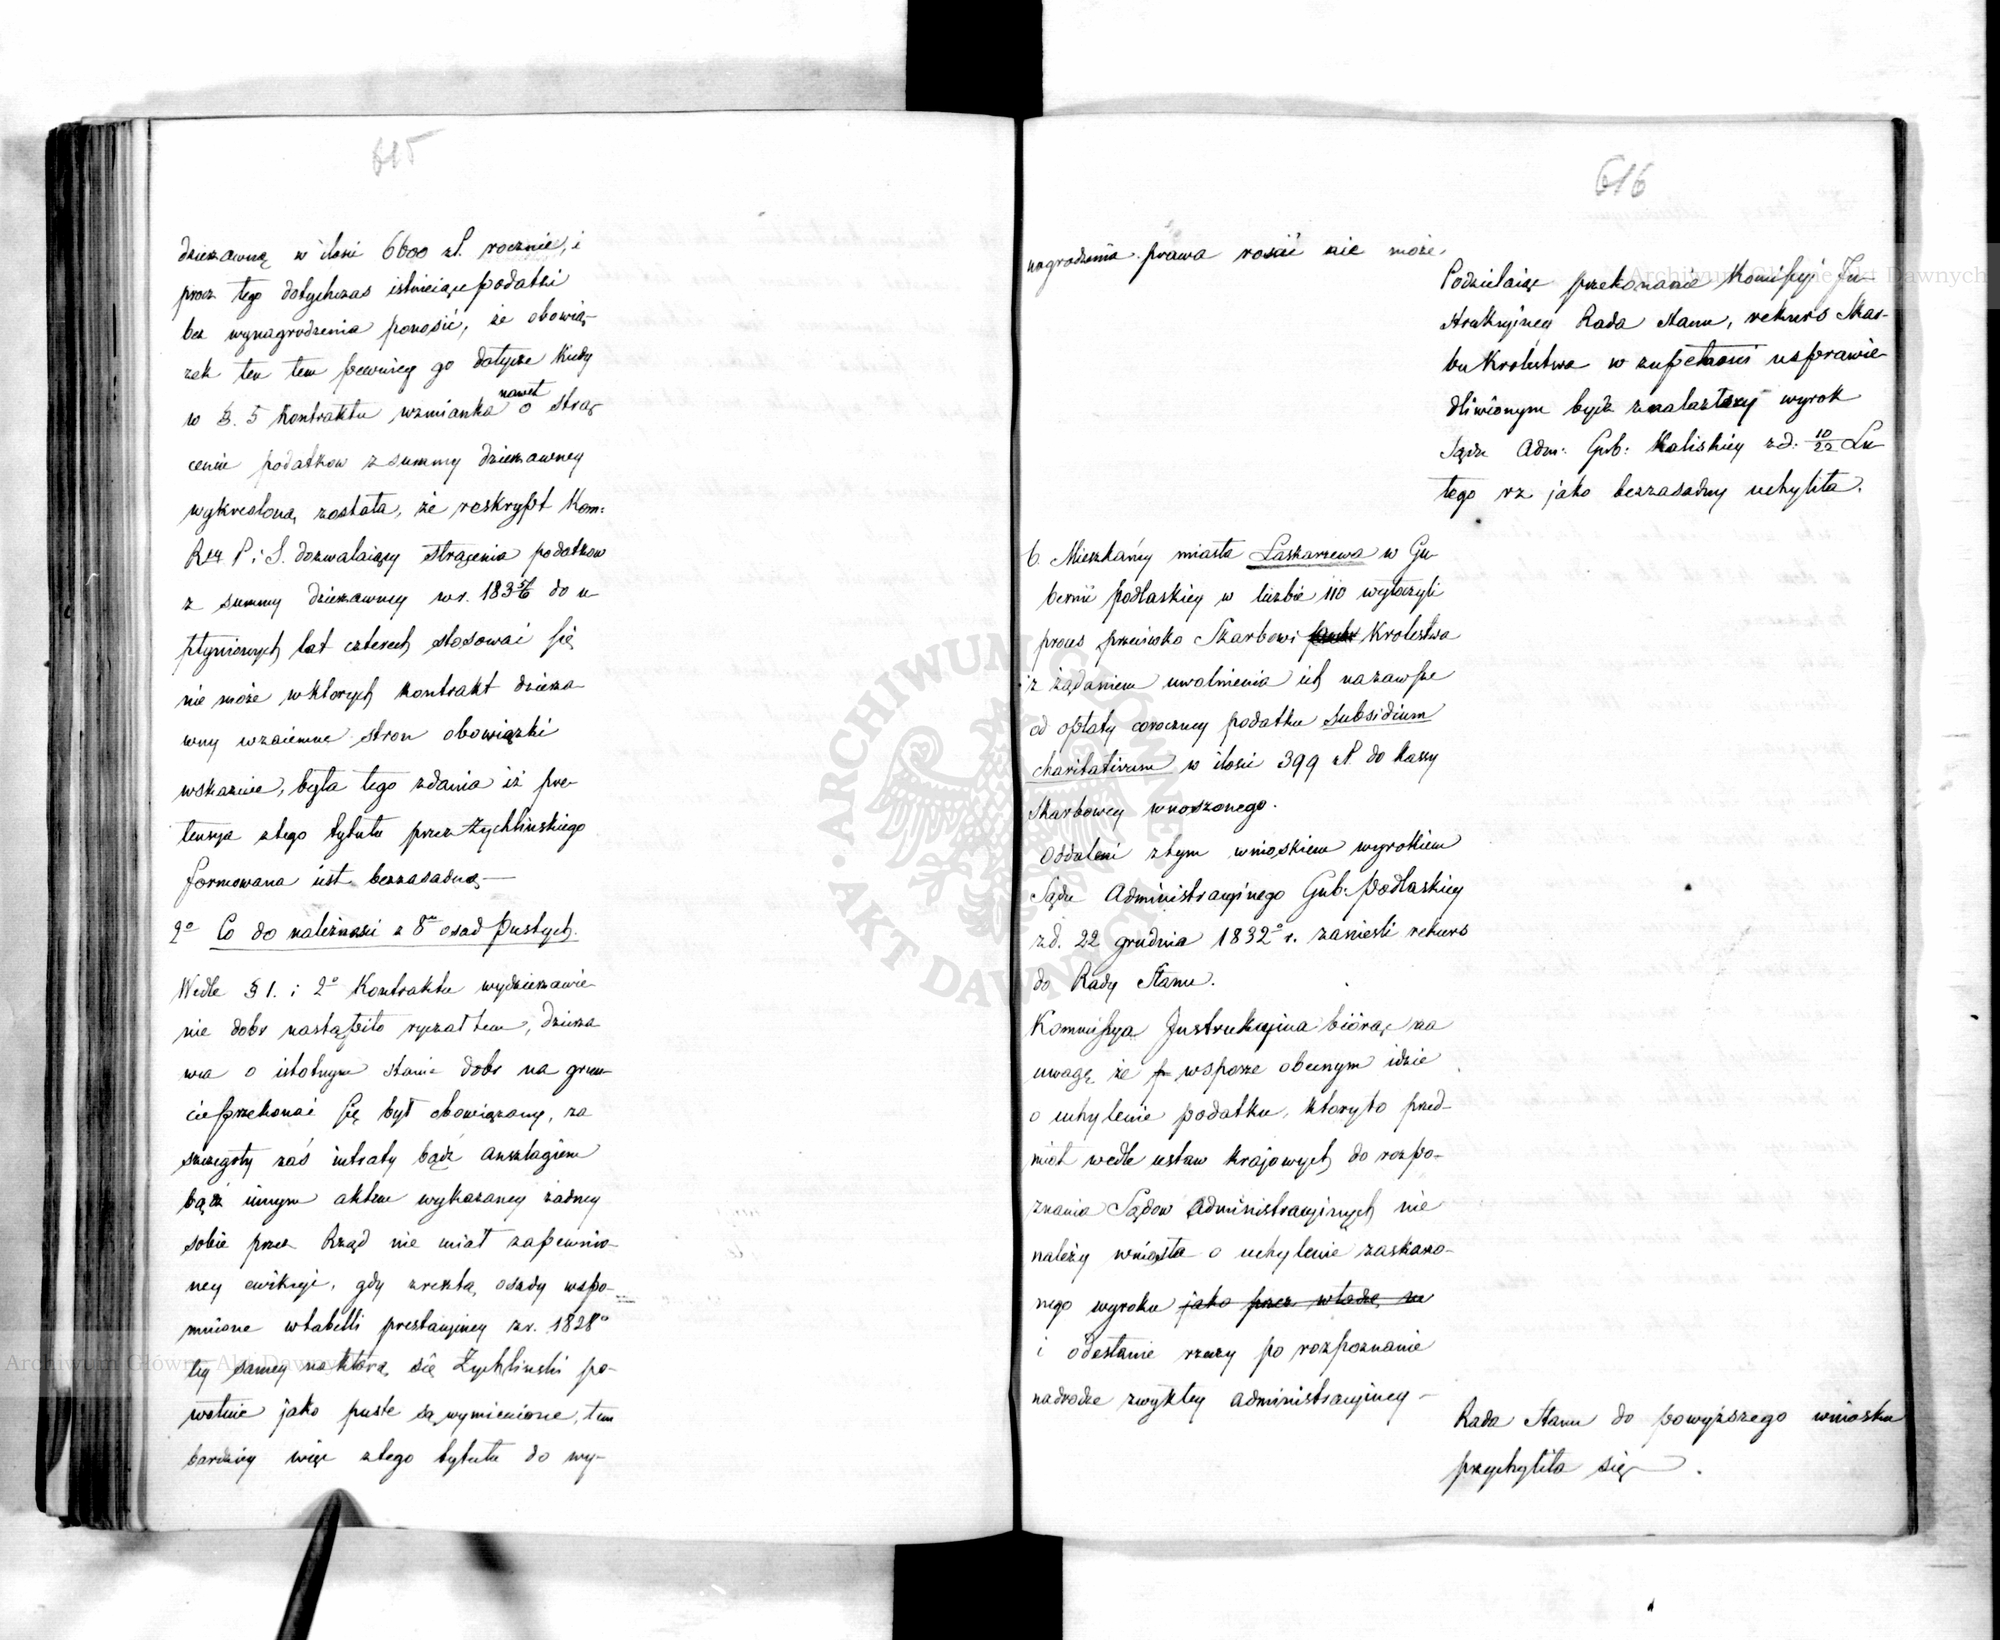 615
dzierzawną w ilosci 6600 zł. rocznie, i
procz tego dotychczas istnieiące podatki
bez wynagrodzenia ponosić, że obowią-
zek ten tem pewniey go dotycze kiedy
w §. 5 kontraktu wzmianka nawet o strą-
ceniu podatkow z summy dzierzawney
wykreśloną została, że reskrypt Kom:
Rzą P. i S. dozwalaiący strącenia podatkow
z summy dzierzawney w r. 1835/6 do u-
płynionych lat czterech stosować się
nie może w ktorych kontrakt dzierża-
wny wzaiemne stron obowiązki
wskazuie, była tego zdania iż pre-
tensya z tego tytułu przez Zychlinskiego
formowana iest bezzasadną —
2o Co do należności z 8u osad pustych.
Wedle § 1. i 2o Kontraktu wydzierzawie-
nie dobr nastąpiło ryczałtem, dzierza
wca o istotnym stanie dobr na grun-
cie przekonać się był obowiązany, za
szczegoły zaś intraty bądź anszlagiem
bądź innym aktem wykazaney żadney
sobie przez Rząd nie miał zapewnio-
ney ewikcyi, gdy zresztą osady wspo-
mnione w tabelli prestacyiney z r. 1828o
tey samey na którą się Zychlinski po-
wołuie jako puste są wymienione, tem
bardziey więc z tego tytułu do wy-
616
nagrodzenia prawa rościć nie może.
Podzielaiąc przekonanie Komissyi In-
strukcyiney Rada Stanu, rekurs Skar-
bu Krolestwa w zupełności usprawie-
dliwionym bydź znalazłszy wyrok
Sądu Adm: Gub: Kaliskiey z d. 10/22 Lu-
tego rz jako bezzasadny uchyliła.
6. Mieszkańcy miasta Łaskarzewa w Gu-
bernii podlaskiey w liczbie 110 wytoczyli
proces przeciwko Skarbowi Krolestwa
z żądaniem uwolnienia ich na zawsze
od opłaty coroczney podatku subsidium
charitativum w ilości 399 zł do Kassy
Skarbowey wnoszonego.
Oddaleni z tym wnioskiem wyrokiem
Sądu Administracyinego Gub: Podlaskiey
z d. 22 grudnia 1832o r. zanieśli rekurs
do Rady Stanu.
Kommissya Instrukcyina biorąc na
uwagę że w sporze obecnym idzie
o uchylenie podatku, który to przed-
miot wedle ustaw krajowych do rozpo-
znania Sądow Administracyinych nie
należy wniosła o uchylenie zaskarzo-
nego wyroku jako przez władzę nie
i odesłanie rzeczy po rozpoznanie
na drodze zwykłey administracyiney —
Rada Stanu do powyższego wniosku
przychyliła się.
Archiwum Główne Akt Dawnych